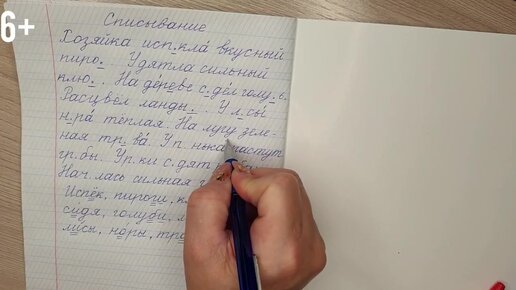 6+
Списывание
Хозяйка исп.кла́ вкусный
пиро. . У дятла сильный
клю. . На де́реве с.де́л голу.ь.
Расцвёл ланды. . У л.сы́
н.ра́ тёплая. На лугу зелё-
ная тр.ва́. У п.нька растут
гр.бы. Ур.ки с.дят
Нач.лась сильная
Испёк, пироги,
си́дя, голуби,
лисы, но́ры,